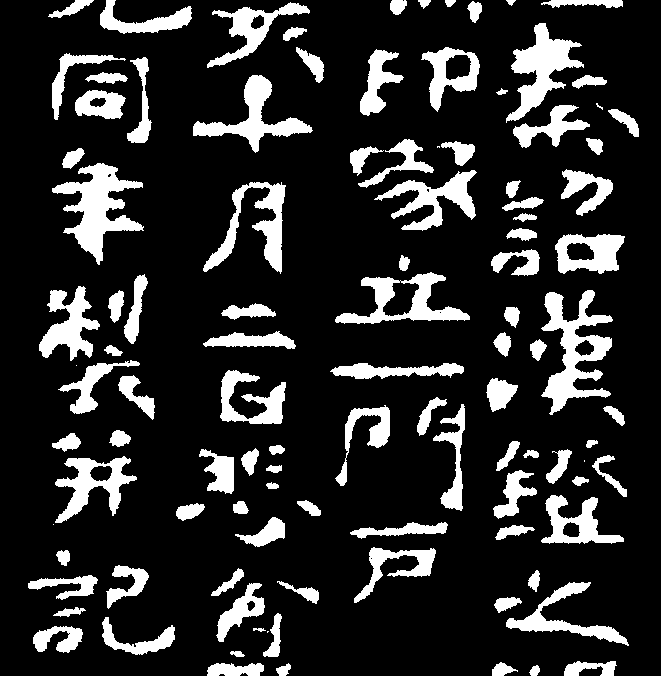 秦詔漢鐙之
印家立一門戶
亥十月二日悲盦
同年製并記